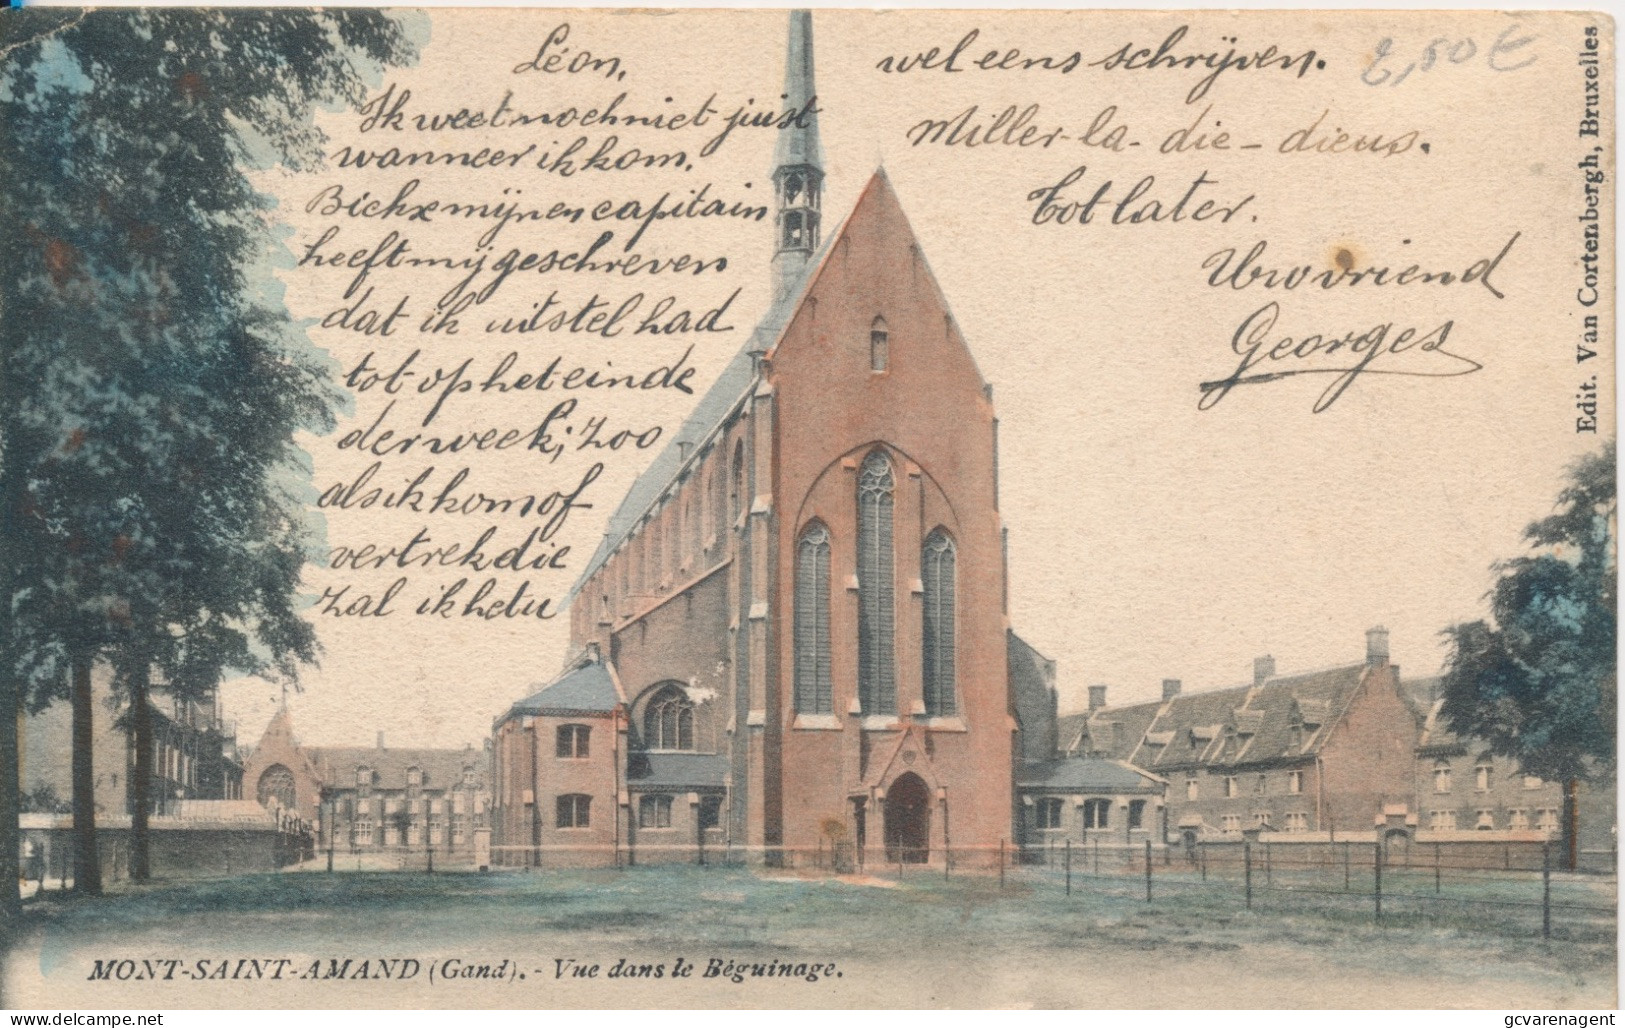 Léon,
Ik weet noch niet juist
wanneer ik kom.
mijnen capitain
heeft mij geschreven
dat ik uitstel had
tot op het einde
der week; zoo
als ik kom of
vertrek die
zal ik het u
wel eens schrijven.
Miller-la-die-dieus.
Tot later.
Uw vriend
Georges
2,50 €
Edit. Van Cortenbergh, Bruxelles
MONT-SAINT-AMAND (Gand). - Vue dans le Béguinage.
Delcampe.net
gcvarenagent